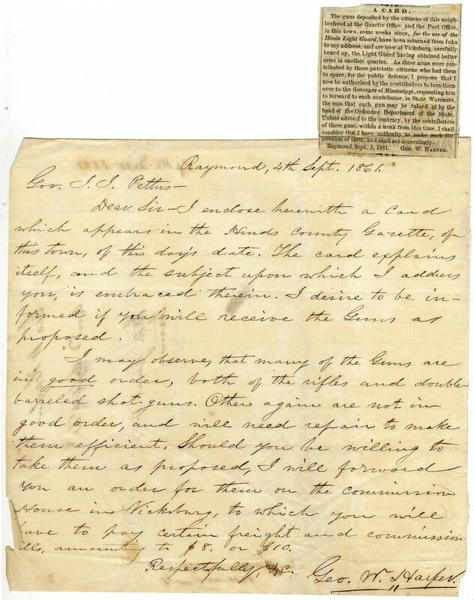 A CARD.
The guns deposited by the citizens of this neigh-
borhood at the Gazette Office and the Post Office,
in this town, some weeks since, for the use of the
Hinds Light Guard, have been returned from Iuka
to my address, and are now at Vicksburg, carefully
boxed up, the Light Guard having obtained better
arms in another quarter. As these arms were con-
tributed by those patriotic citizens who had them
to spare, for the public defence, I propose that I
now be authorized by the contributors to turn them
over to the Governor of Mississippi, requesting him
to forward to each contributor, in State Warrants,
the sum that each gun may be valued at by the
head of the Ordnance Department of the State.
Unless advised to the contrary, by the contributors
of these guns, within a week from this time, I shall
consider that I have authority to make such dis-
position of them, and shall act accordingly.
Raymond, Sept. 3, 1861. GEO. W. HARPER.
Raymond, 4th Sept. 1861.
Gov. J. J. Pettus—
Dear Sir—I enclose herewith a Card
which appears in the Hinds County Gazette, of
this town, of this day's date. The card explains
itself, and the subject upon which I address
you, is embraced therein. I desire to be in-
formed if you will receive the Guns as
proposed.
I may observe, that many of the Guns are
in good order, both of the rifles and double
barreled shot-guns. Others again are not in
good order, and will need repair to make
them efficient. Should you be willing to
take them as proposed, I will forward
you an order for them on the commission
House in Vicksburg, to which you will
have to pay certain freight and commission
bills, amounting to $8. or $10.
Respectfully, &c.
Geo. W. Harper.